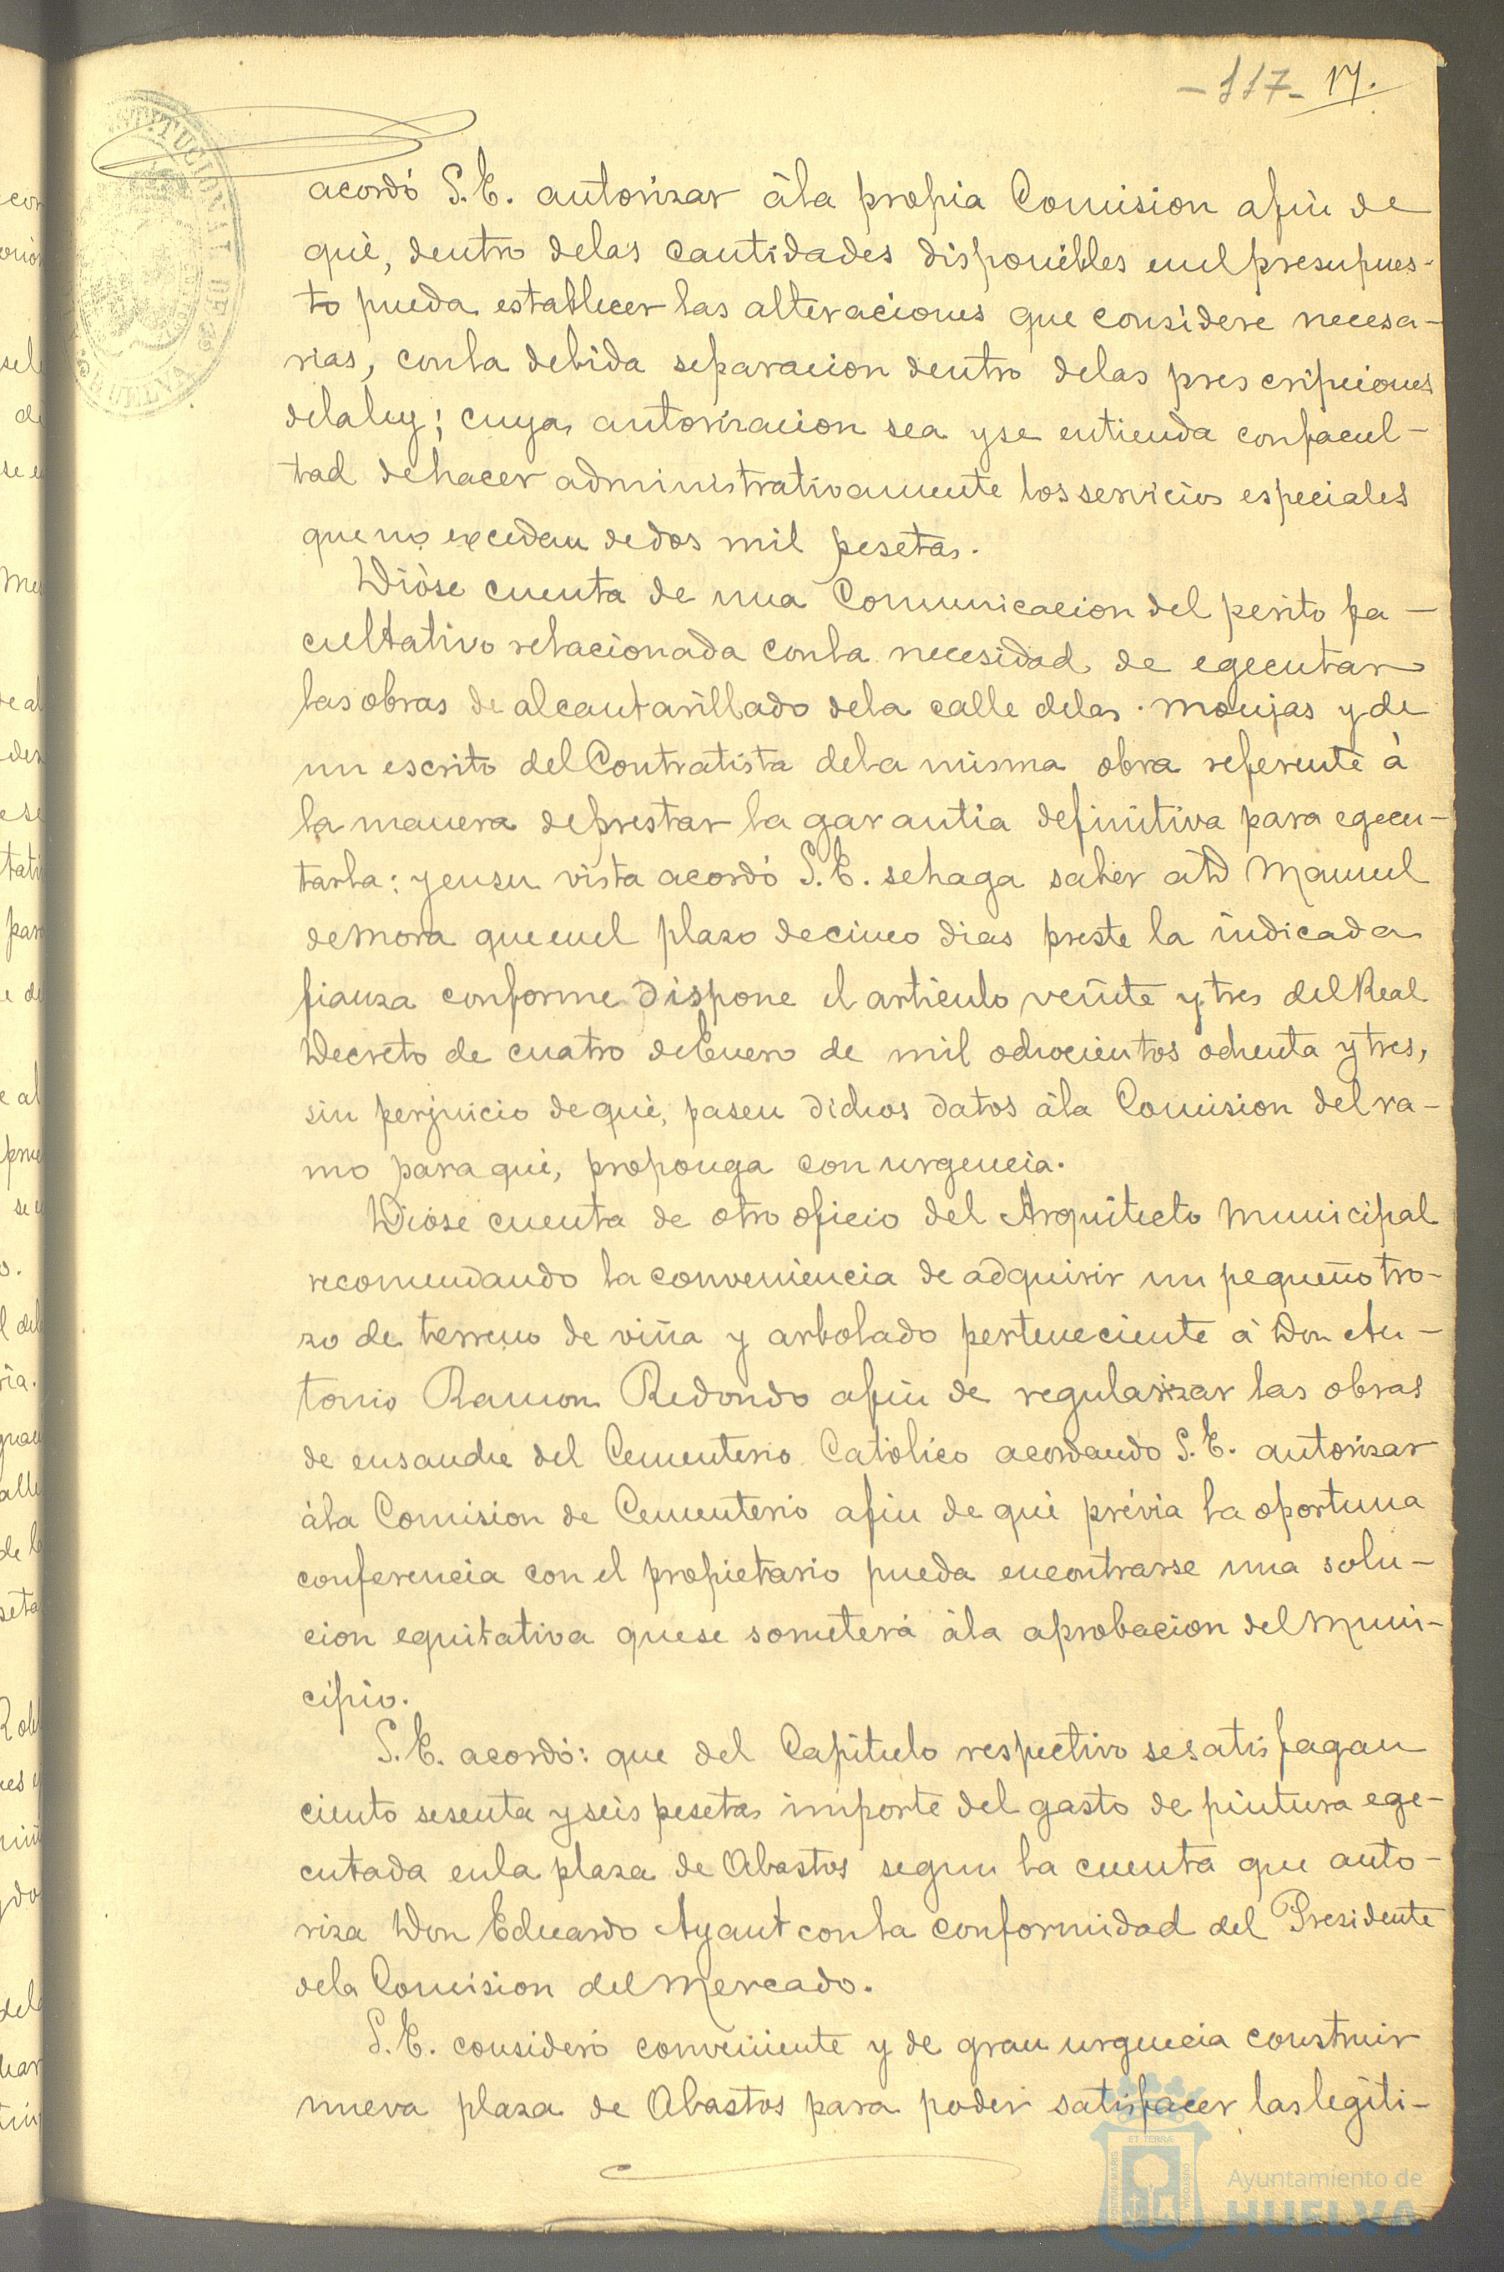 -117- 17.
acordó S.E. autorizar àla propia Comision afin de
què, dentro delas cantidades disponibles enel presupues-
to pueda establecer las alteraciones que considere necesa-
rias, conla debida separacion dentro delas prescripciones
delaley; cuya autorizacion sea yse entienda confacul-
tad dehacer administrativamente los servicios especiales
que no excedan dedos mil pesetas.
Diòse cuenta de una Comunicacion del perito fa-
cultativo relacionada conla necesidad de egecutar
las obras de alcantarillado dela calle delas Monjas y de
un escrito del Contratista dela misma obra referente à
la manera deprestar la garantia definitiva para egecu-
tarla: y ensu vista acordó S.E. sehaga saber à D Manuel
deMora que enel plazo decinco dias preste la indicada
fianza conforme dispone el articulo veinte ytres del Real
Decreto de cuatro deEnero de mil ochocientos ochenta ytres,
sin perjuicio de què, pasen dichos datos àla Comision del ra-
mo para què, proponga con urgencia.
Dióse cuenta de otro oficio del Arquitecto Municipal
recomendando la conveniencia de adquirir un pequeño tro-
zo de terreno de viña y arbolado perteneciente à Don An-
tonio Ramon Redondo afin de regularizar las obras
de ensanche del Cementerio Catòlico acordando S.E. autorizar
àla Comision de Cementerio afin de què prévia la oportuna
conferencia con el propietario pueda encontrarse una solu-
cion equitativa quese someterá àla aprobacion del Muni-
cipio.
S.E. acordó: que del Capitulo respectivo sesatisfagan
ciento sesenta yseis pesetas importe del gasto de pintura ege-
cutada enla plaza de Abastos segun la cuenta que auto-
riza Don Eduardo Ayant conla conformidad del Presidente
dela Comision del Mercado.
S.E. consideró conveniente y de gran urgencia construir
nueva plaza de Abastos para poder satisfacer las legiti-
Ayuntamiento de
HUELVA